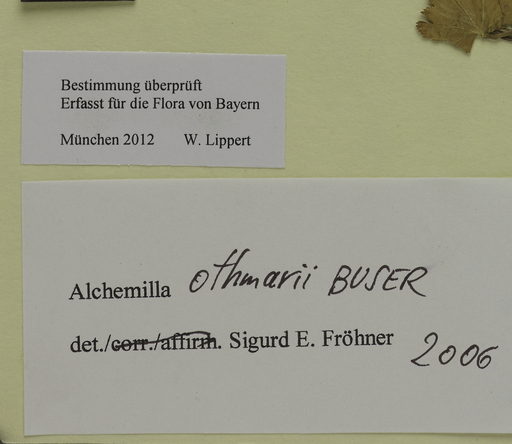 Bestimmung überprüft
Erfasst für die Flora von Bayern
München 2012 W. Lippert
Alchemilla othmarii BUSER
det./corr./affirm. Sigurd E. Fröhner
2006